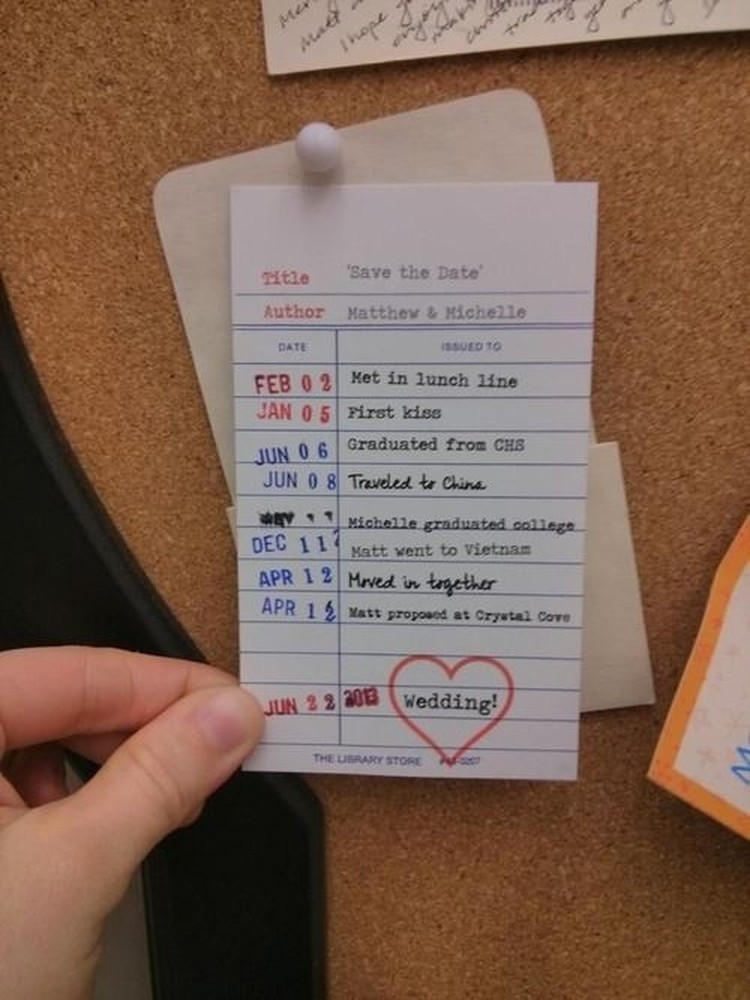 I hope
Title 'Save the Date'
Author Matthew & Michelle
DATE ISSUED TO
FEB 02 Met in lunch line
JAN 05 First kiss
JUN 06 Graduated from CHS
JUN 08 Traveled to China
MAY Michelle graduated college
DEC 11 Matt went to Vietnam
APR 12 Moved in together
APR 12 Matt proposed at Crystal Cove
JUN 22 2013 Wedding!
THE LIBRARY STORE